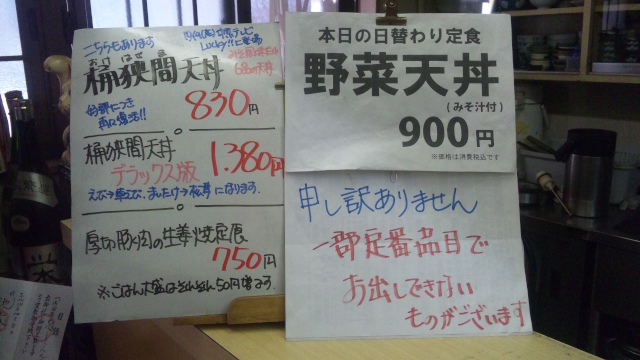 こちらもあります
おけはざま
桶狭間天丼
好評につき
再び復活!!
830円
桶狭間天丼
デラックス版
1.380円
厚切豚肉の生姜焼定食
750円
※ごはん大盛はそれぞれ50円増です
本日の日替わり定食
野菜天丼
(みそ汁付)
900円
※価格は消費税込です
申し訳ありません
一部定番品目で
お出しできない
ものがございます